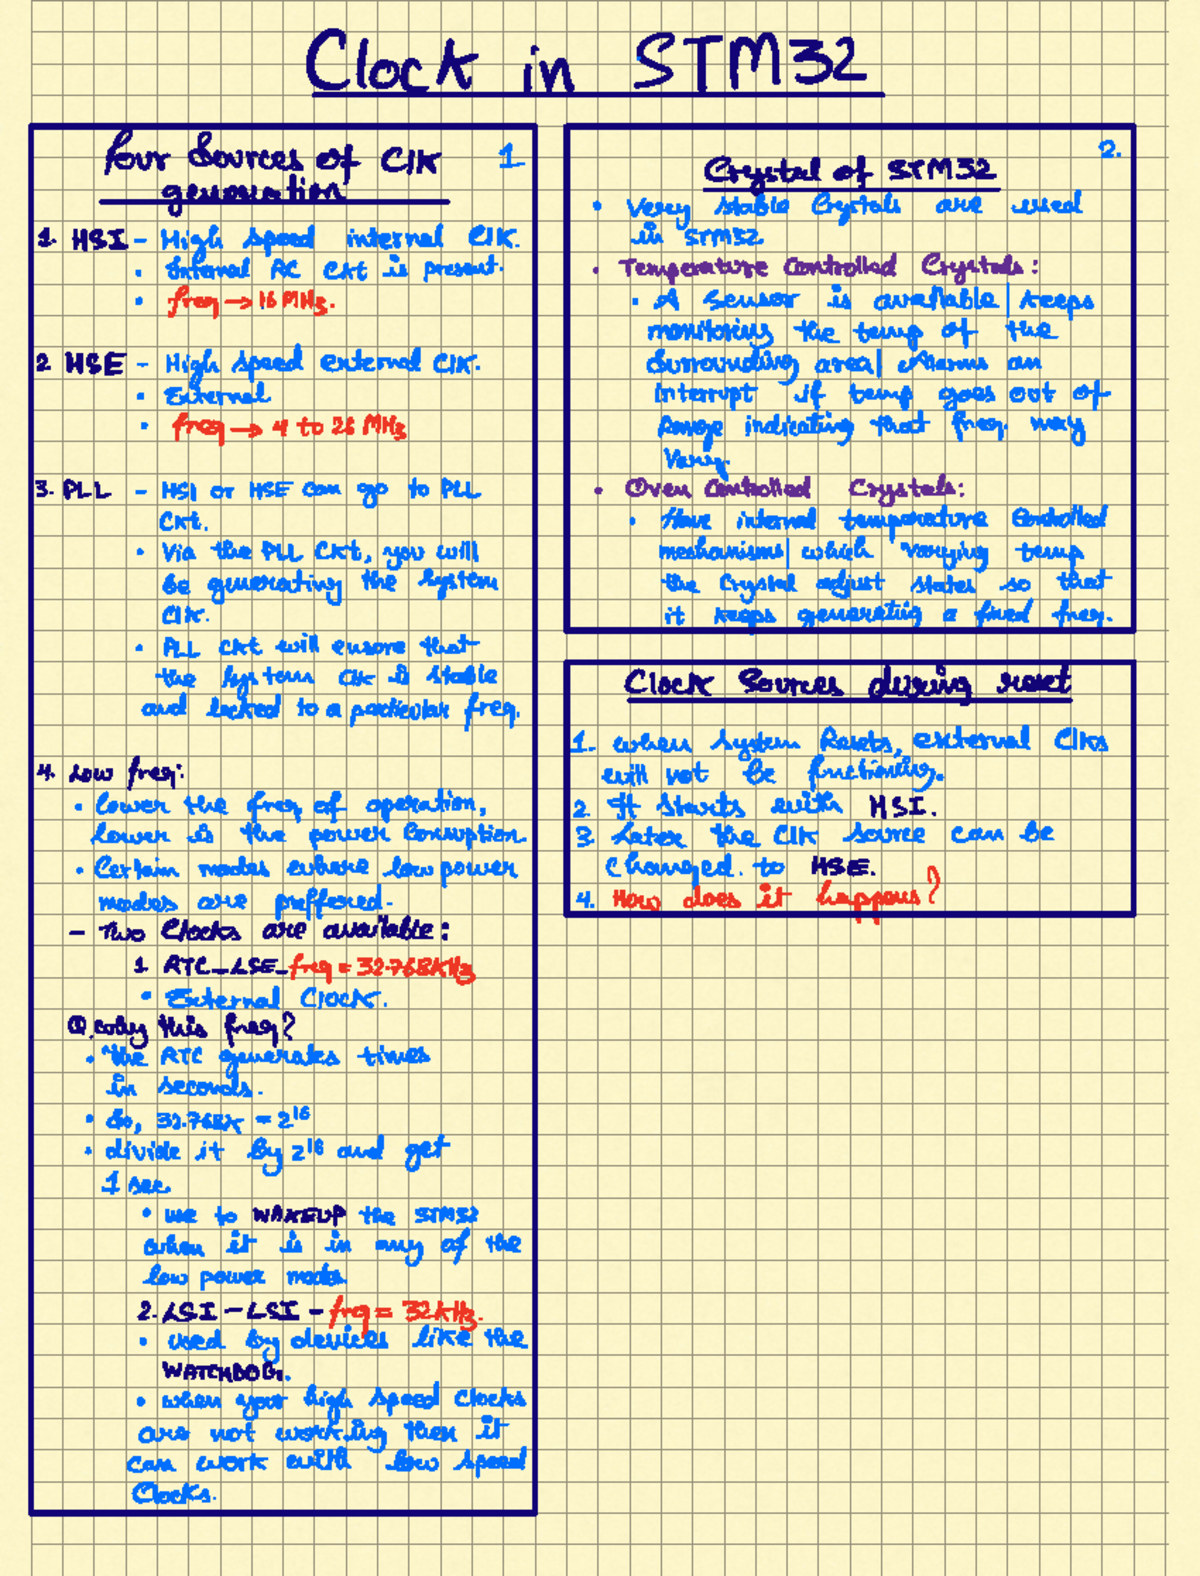 Clock in STM32
Four Sources of Clk 1
generation
1. HSI - High Speed internal Clk.
• Internal RC Ckt is present.
• freq → 16 MHz.
2 HSE - High Speed external Clk.
• External
• freq → 4 to 26 MHz
3. PLL - HSI or HSE can go to PLL
Ckt.
• Via the PLL Ckt, you will
be generating the System
Clk.
• PLL Ckt will ensure that
the System Clk is stable
and locked to a particular freq.
4. Low freq:
• lower the freq of operation,
lower is the power Consuption.
• Certain modes where low power
modes are preffered.
- Two Clocks are available:
1 RTC_LSE_freq = 32.768KHz
• External Clock.
Q. why this freq?
• the RTC generates times
in seconds.
• So, 32.768K = 2¹⁶
• divide it by 2¹⁶ and get
1 sec
• use to WAKEUP the STM32
when it is in any of the
low power modes
2. LSI - LSI - freq = 32KHz.
• used by devices like the
WATCHDOG.
• when your high Speed Clocks
are not working then it
can work with low Speed
Clocks.
2.
Crystal of STM32
• Very stable Crystals are used
in STM32
• Temperature Controlled Crystals:
• A Sensor is available | keeps
monitoring the temp of the
Surrounding area | Alarms an
Interrupt if temp goes out of
Range indicating that freq. may
Vary.
• Oven Controlled Crystals:
• Have internal temperature Controlled
mechanisms | which varying temp
the Crystal adjust states so that
it keeps generating a fixed freq.
Clock Sources during reset
1. when System Resets, external Clks
will not be functioning.
2. It starts with HSI.
3. Later the Clk source can be
Changed. to HSE.
4. How does it happens?